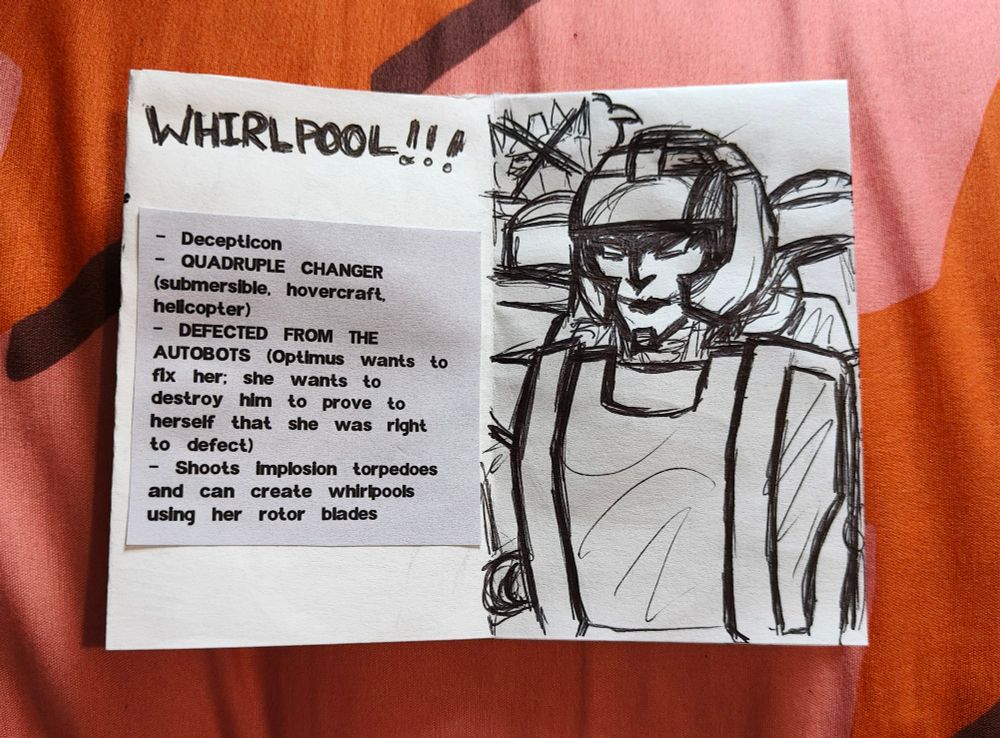 WHIRLPOOL!!!
- Decepticon
- QUADRUPLE CHANGER
(submersible, hovercraft,
helicopter)
- DEFECTED FROM THE
AUTOBOTS (Optimus wants to
fix her; she wants to
destroy him to prove to
herself that she was right
to defect)
- Shoots implosion torpedoes
and can create whirlpools
using her rotor blades